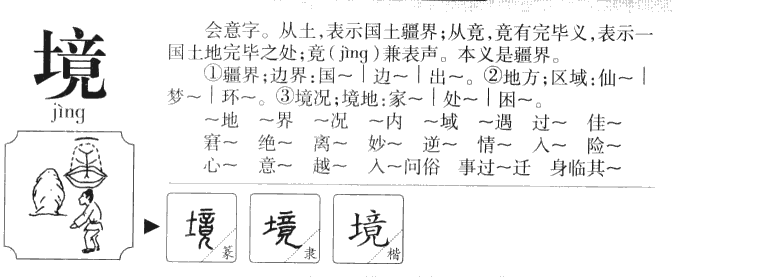 境
jìng
会意字。从土,表示国土疆界;从竟,竟有完毕义,表示一
国土地完毕之处;竟(jìng)兼表声。本义是疆界。
①疆界;边界:国~｜边~｜出~。②地方;区域:仙~｜
梦~｜环~。③境况;境地:家~｜处~｜困~。
~地 ~界 ~况 ~内 ~域 ~遇 过~ 佳~
窘~ 绝~ 离~ 妙~ 逆~ 情~ 入~ 险~
心~ 意~ 越~ 入~问俗 事过~迁 身临其~
境 篆
境 隶
境 楷